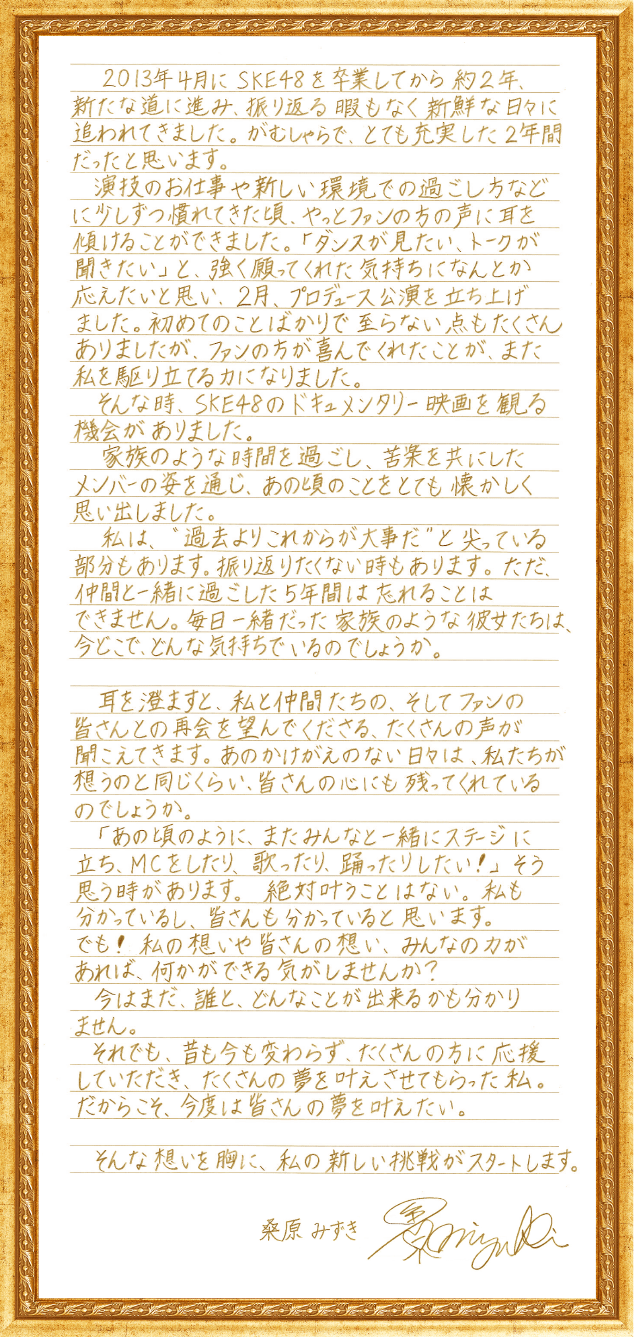 2013年4月にSKE48を卒業してから約2年、
新たな道に進み、振り返る暇もなく新鮮な日々に
追われてきました。がむしゃらで、とても充実した2年間
だったと思います。
演技のお仕事や新しい環境での過ごし方など
に少しずつ慣れてきた頃、やっとファンの方の声に耳を
傾けることができました。「ダンスが見たい、トークが
聞きたい」と、強く願ってくれた気持ちになんとか
応えたいと思い、2月、プロデュース公演を立ち上げ
ました。初めてのことばかりで至らない点もたくさん
ありましたが、ファンの方が喜んでくれたことが、また
私を駆り立てる力になりました。
そんな時、SKE48のドキュメンタリー映画を観る
機会がありました。
家族のような時間を過ごし、苦楽を共にした
メンバーの姿を通じ、あの頃のことをとても懐かしく
思い出しました。
私は、“過去よりこれからが大事だ”と尖っている
部分もあります。振り返りたくない時もあります。ただ、
仲間と一緒に過ごした5年間は忘れることは
できません。毎日一緒だった家族のような彼女たちは、
今どこで、どんな気持ちでいるのでしょうか。
耳を澄ますと、私と仲間たちの、そしてファンの
皆さんとの再会を望んでくださる、たくさんの声が
聞こえてきます。あのかけがえのない日々は、私たちが
想うのと同じくらい、皆さんの心にも残ってくれている
のでしょうか。
「あの頃のように、またみんなと一緒にステージに
立ち、MCをしたり、歌ったり、踊ったりしたい!」そう
思う時があります。 絶対叶うことはない。私も
分かっているし、皆さんも分かっていると思います。
でも! 私の想いや皆さんの想い、みんなの力が
あれば、何かができる気がしませんか?
今はまだ、誰と、どんなことが出来るかも分かり
ません。
それでも、昔も今も変わらず、たくさんの方に応援
していただき、たくさんの夢を叶えさせてもらった私。
だからこそ、今度は皆さんの夢を叶えたい。
そんな想いを胸に、私の新しい挑戦がスタートします。
桑原みずき
Mizuki